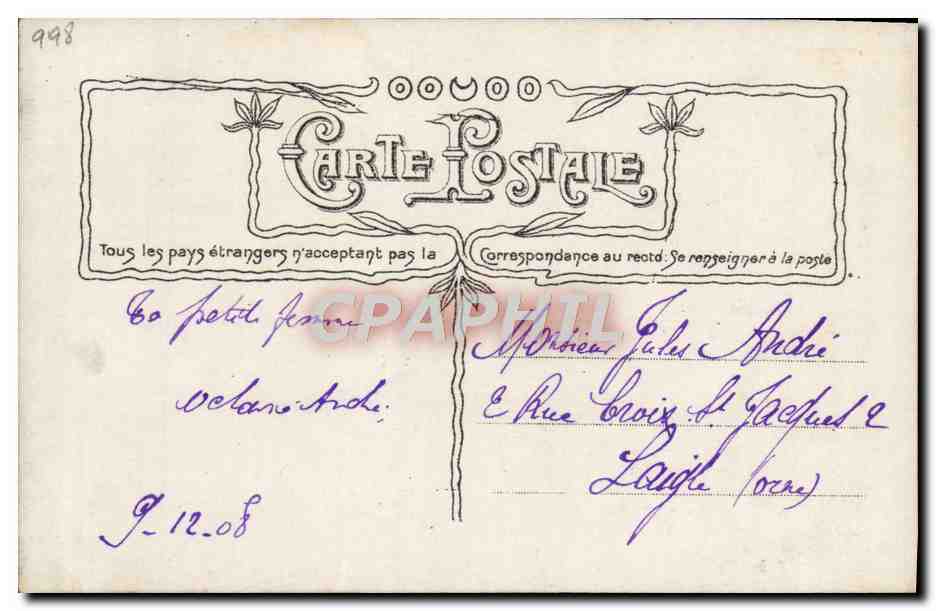 998
CARTE POSTALE
Tous les pays étrangers n'acceptant pas la Correspondance au recto: Se renseigner à la poste
CPAPHIL
Ta petite femme
André
9-12-08
Monsieur Jules André
2 Rue Croix St Jacques 2
Laigle (orne)